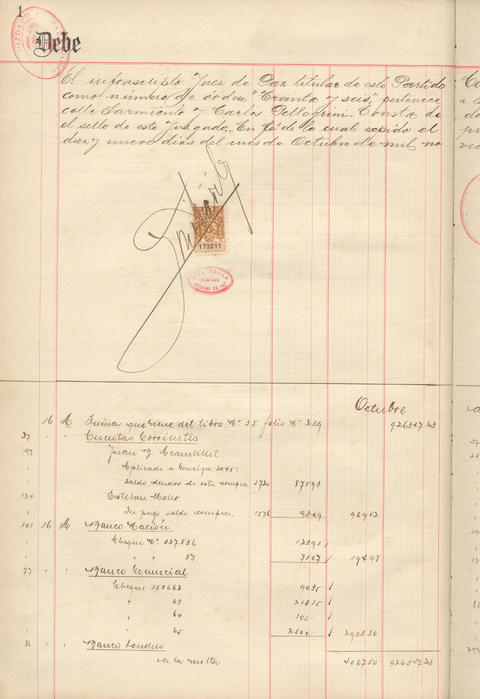 1
Debe
El infrascripto Juez de Paz titular de este Partido
como número de órden "Treinta y seis", pertenece
calle Sarmiento y Carlos Pellegrini. Consta de
el sello de este Juzgado. En fé de lo cual expido el
diez y nueve días del mes de Octubre de mil no
173211
Octubre
16 A Suma que viene del libro Nº 35 folio Nº 239 926347.23
37 Cuentas Corrientes
Juan
Aplicado a
saldo deudor de esta compra 1720 87593
134 Esteban
In pago saldo compra 1576 9309 96902
101 16 A Banco Nación
Cheque Nº 327536 12391
" " 37 7107 19498
77 " " Banco Comercial
Cheque 153662 9035
" 63 21315
" 64 100
" 65 2500 290350
Banco Londres
a la vuelta 406750 926347.23